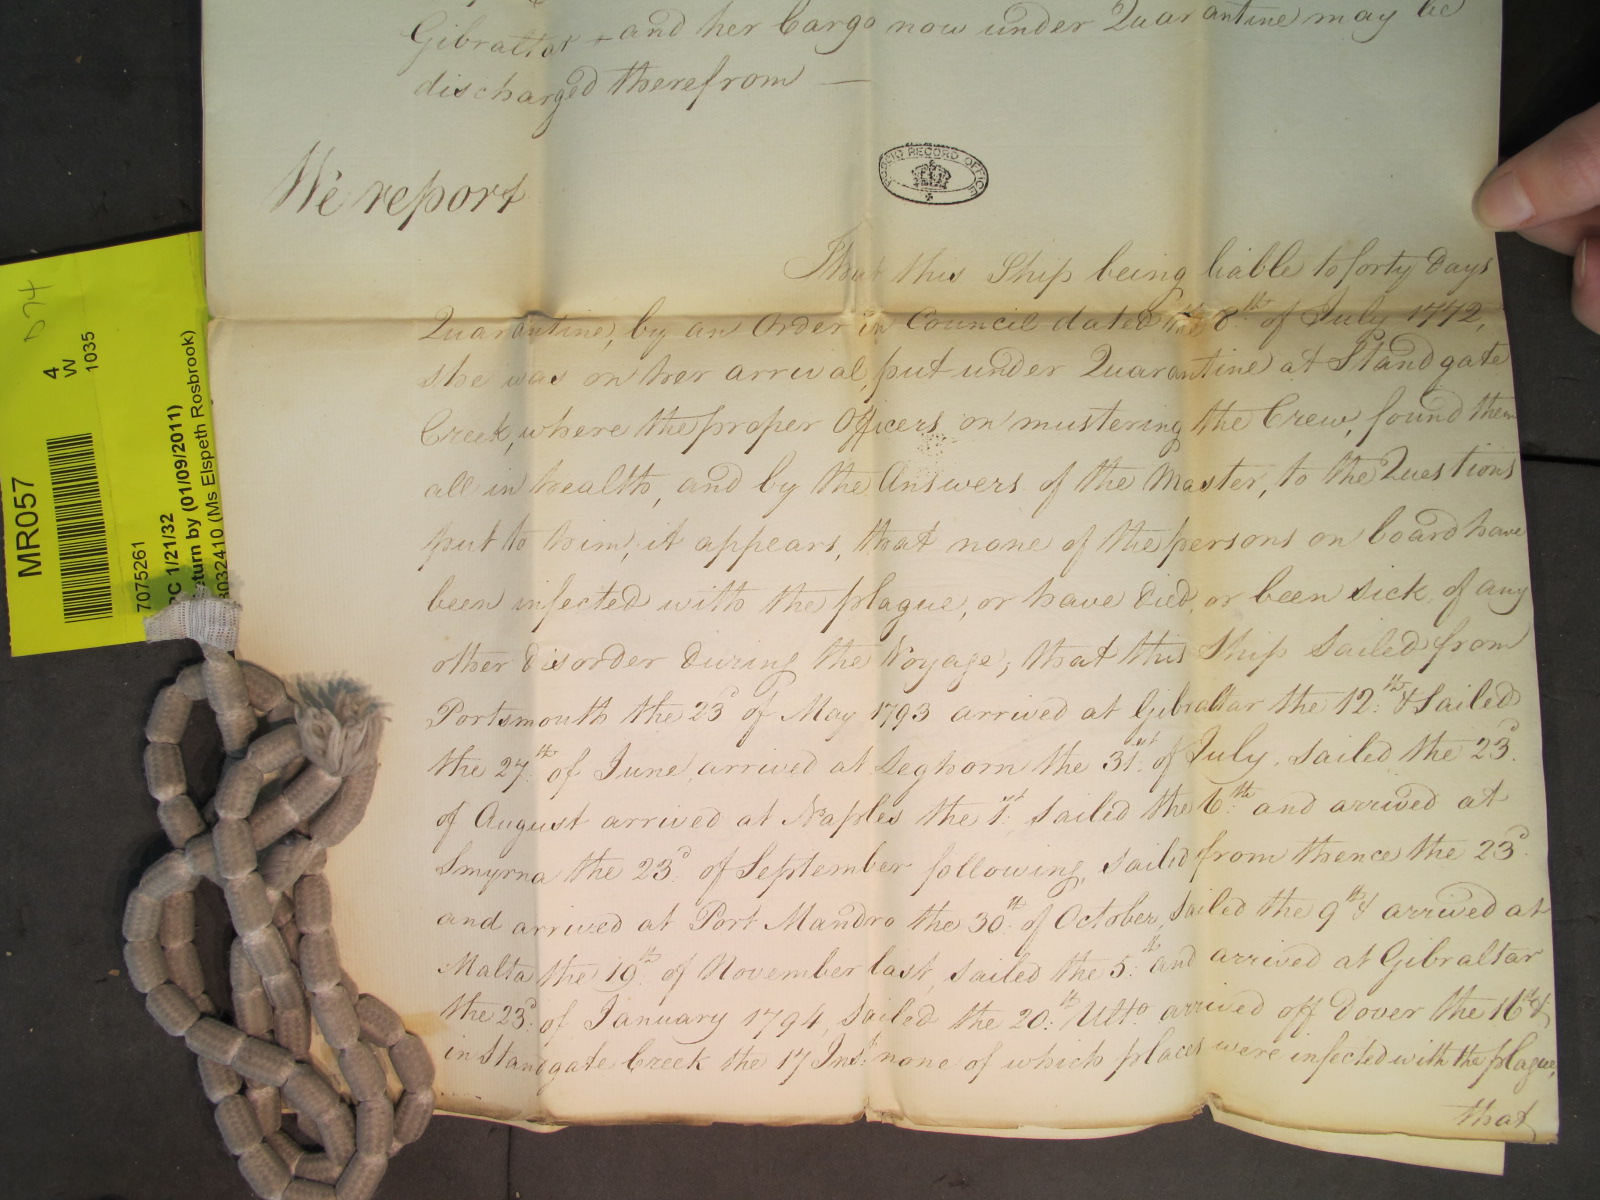 Gibraltar - and her Cargo now under Quarantine may be
discharged therefrom —
We report
PUBLIC RECORD OFFICE
That this Ship being liable to forty days
Quarantine, by an Order in Council dated the 8th of July 1772,
she was on her arrival, put under Quarantine at Standgate
Creek, where the proper Officers on mustering the Crew, found them
all in health, and by the Answers of the Master, to the Questions
put to him, it appears, that none of the persons on board have
been infected with the plague, or have died, or been sick of any
other disorder during the Voyage; that this Ship sailed from
Portsmouth the 23d of May 1793 arrived at Gibraltar the 12th & sailed
the 27th of June arrived at Leghorn the 31st of July, sailed the 23d
of August arrived at Naples the 1st sailed the 6th and arrived at
Smyrna the 23d of September following, sailed from thence the 23d
and arrived at Port Mandro the 30th of October, sailed the 9th & arrived at
Malta the 19th of November last, sailed the 5th and arrived at Gibraltar
the 23d of January 1794, sailed the 20th Ulto arrived off Dover the 16th &
in Standgate Creek the 17 Inst none of which places were infected with the plague,
that
D74
4
W
1035
MR057
7075261
PC 1/21/32
eturn by (01/09/2011)
3032410 (Ms Elspeth Rosbrook)